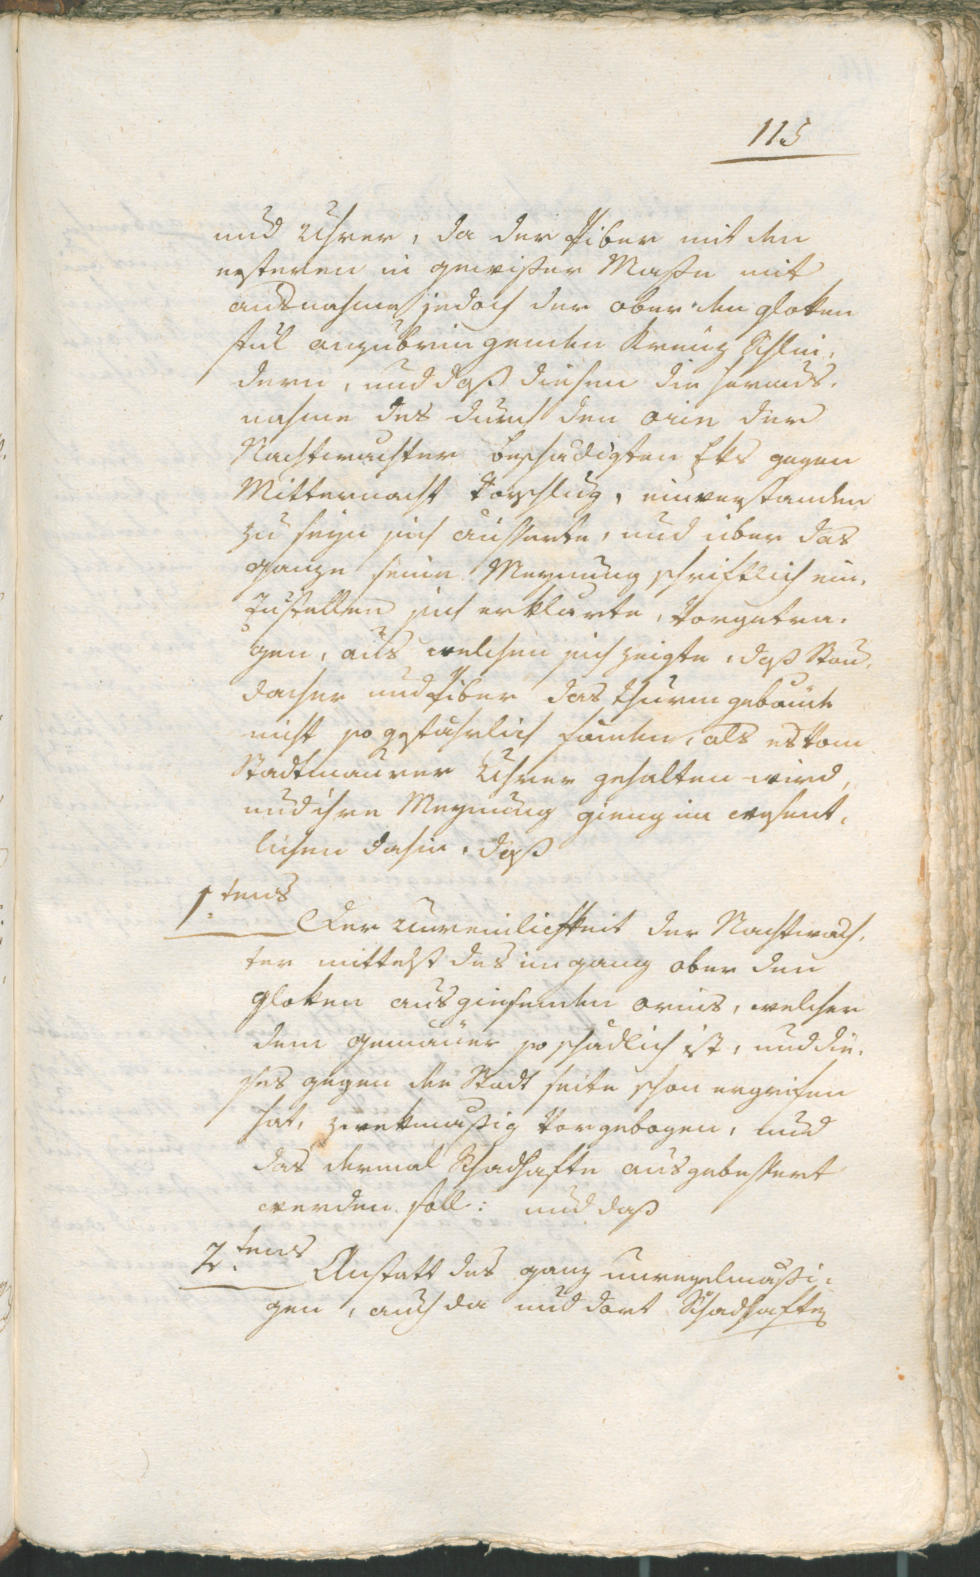 115
und Uhrer, da der Piber mit den
ersteren in gewißer Maße mit
ausnahme jedoch der ober den gloken
stul anzubringenden Kreuz Schlin-
dern, und daß diesen die heraus-
nahme des durch den urin der
Nachtwachter beschädigten Eks gegen
Mitternacht Vorschlug, einverstanden
zu seyn sich äusserte, und über das
ganze seine Meynung schriftlich ein-
zustellen sich erklarte, Vorgetra-
gen, aus welchen sich zeigte, daß Stau-
dacher und Piber das thurmgebäude
nicht so gefährlich fanden, als es Vom
Stadtmaurer Uhrer gehalten wird,
und ihre Meynung gieng im wesent-
lichen dahin, daß
1tens
Der unreinlichkeit der Nachtwach-
ter mittelst des im gang ober den
gloken ausgiesenden urins, welcher
dem gemäuer so schädlich ist, und die-
ses gegen die Stadt seite schon ergrifen
hat, zwekmäßig Vorgebogen, und
das dermal Schadhafte ausgebessert
werden soll: und daß
2tens
Anstatt des ganz unregelmäßi-
gen, auch da und dort Schadhaften